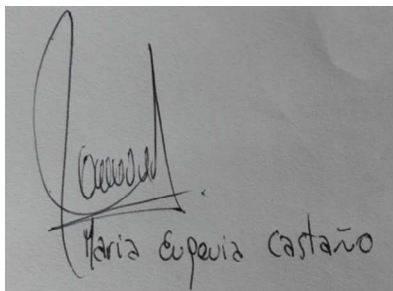 Maria Eugenia Castaño